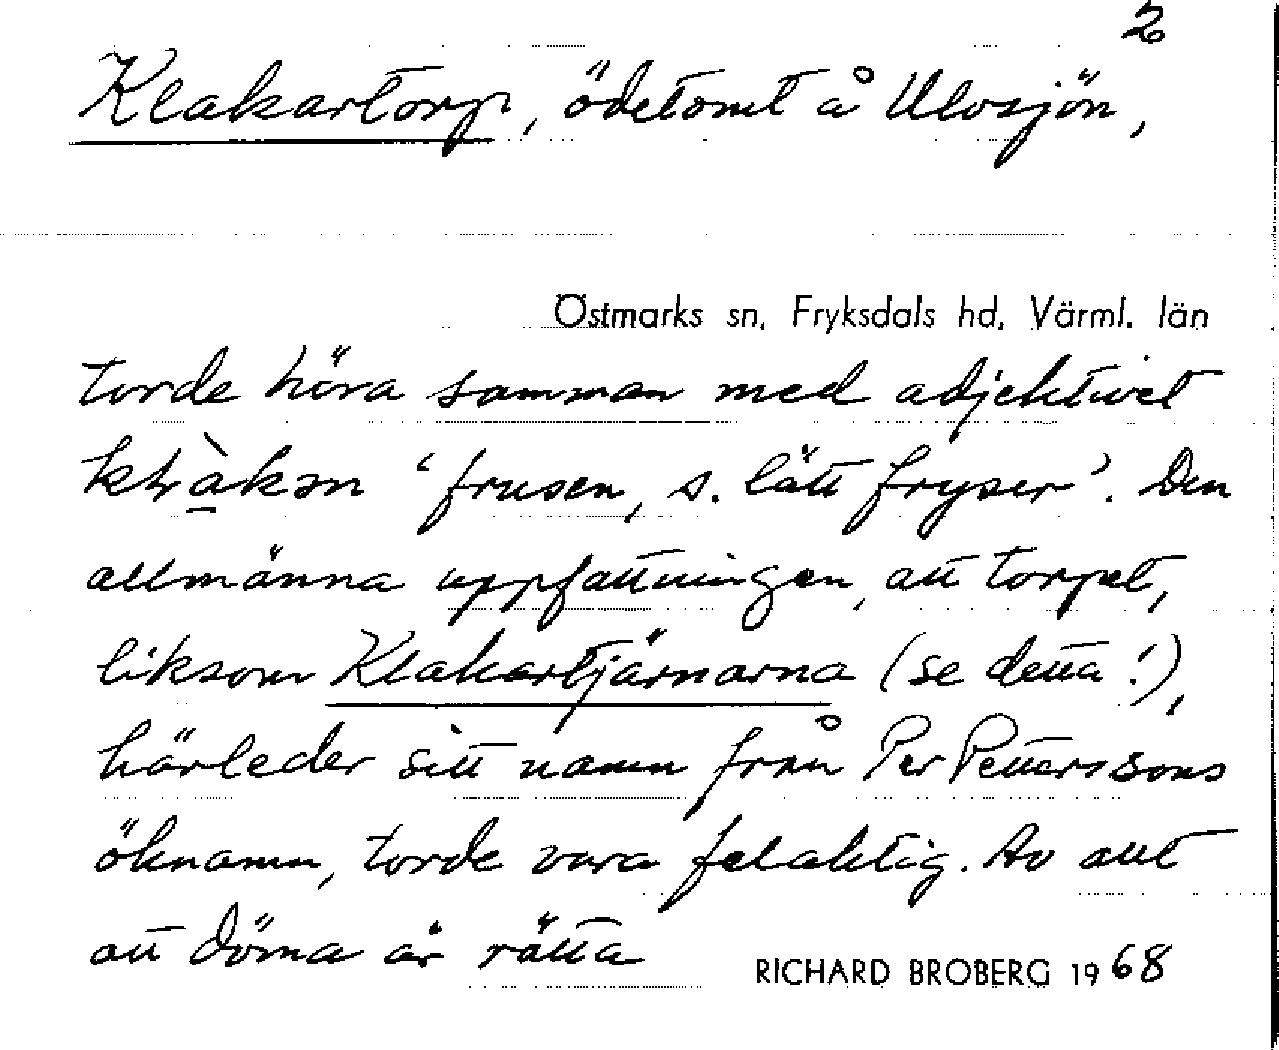 2
Klakartorp, ödetomt å Ulvsjön,
Östmarks sn, Fryksdals hd, Värml. län
torde höra samman med adjektivet
'frusen, s. lätt fryser'. Den
allmänna uppfattningen, att torpet,
liksom Klakartjärnarna (se detta!),
härleder sitt namn från Per Petterssons
öknamn, torde vara felaktig. Av allt
att döma är rätta
RICHARD BROBERG 1968